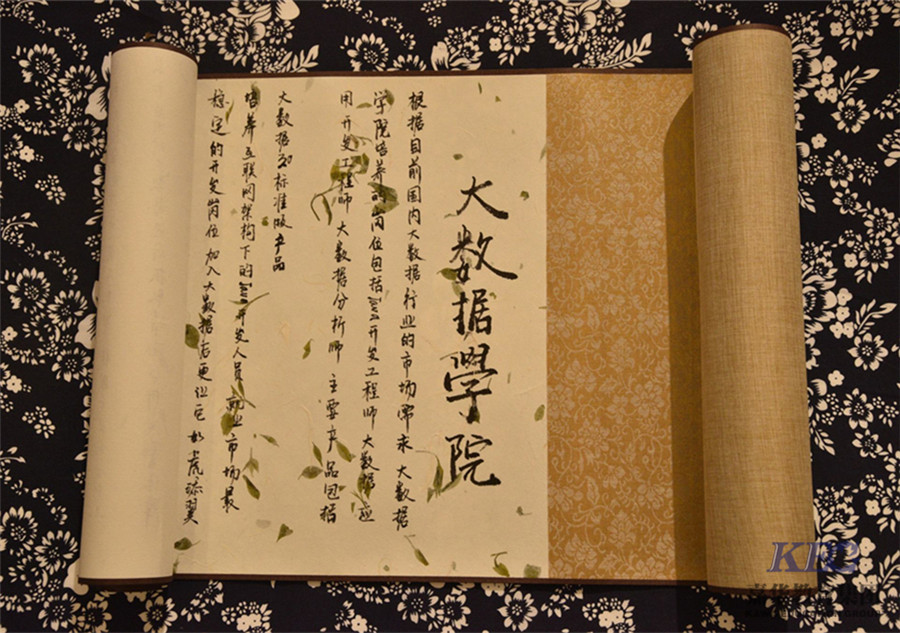 大数据學院
根据目前国内大数据行业的市场需求 大数据
学院培养的岗位包括java开发工程师 大数据应
用开发工程师 大数据分析师 主要产品包括
大数据java标准版产品
培养互联网架构下的java开发人员 就业市场最
稳定的开发岗位 加入大数据后更组合 如虎添翼